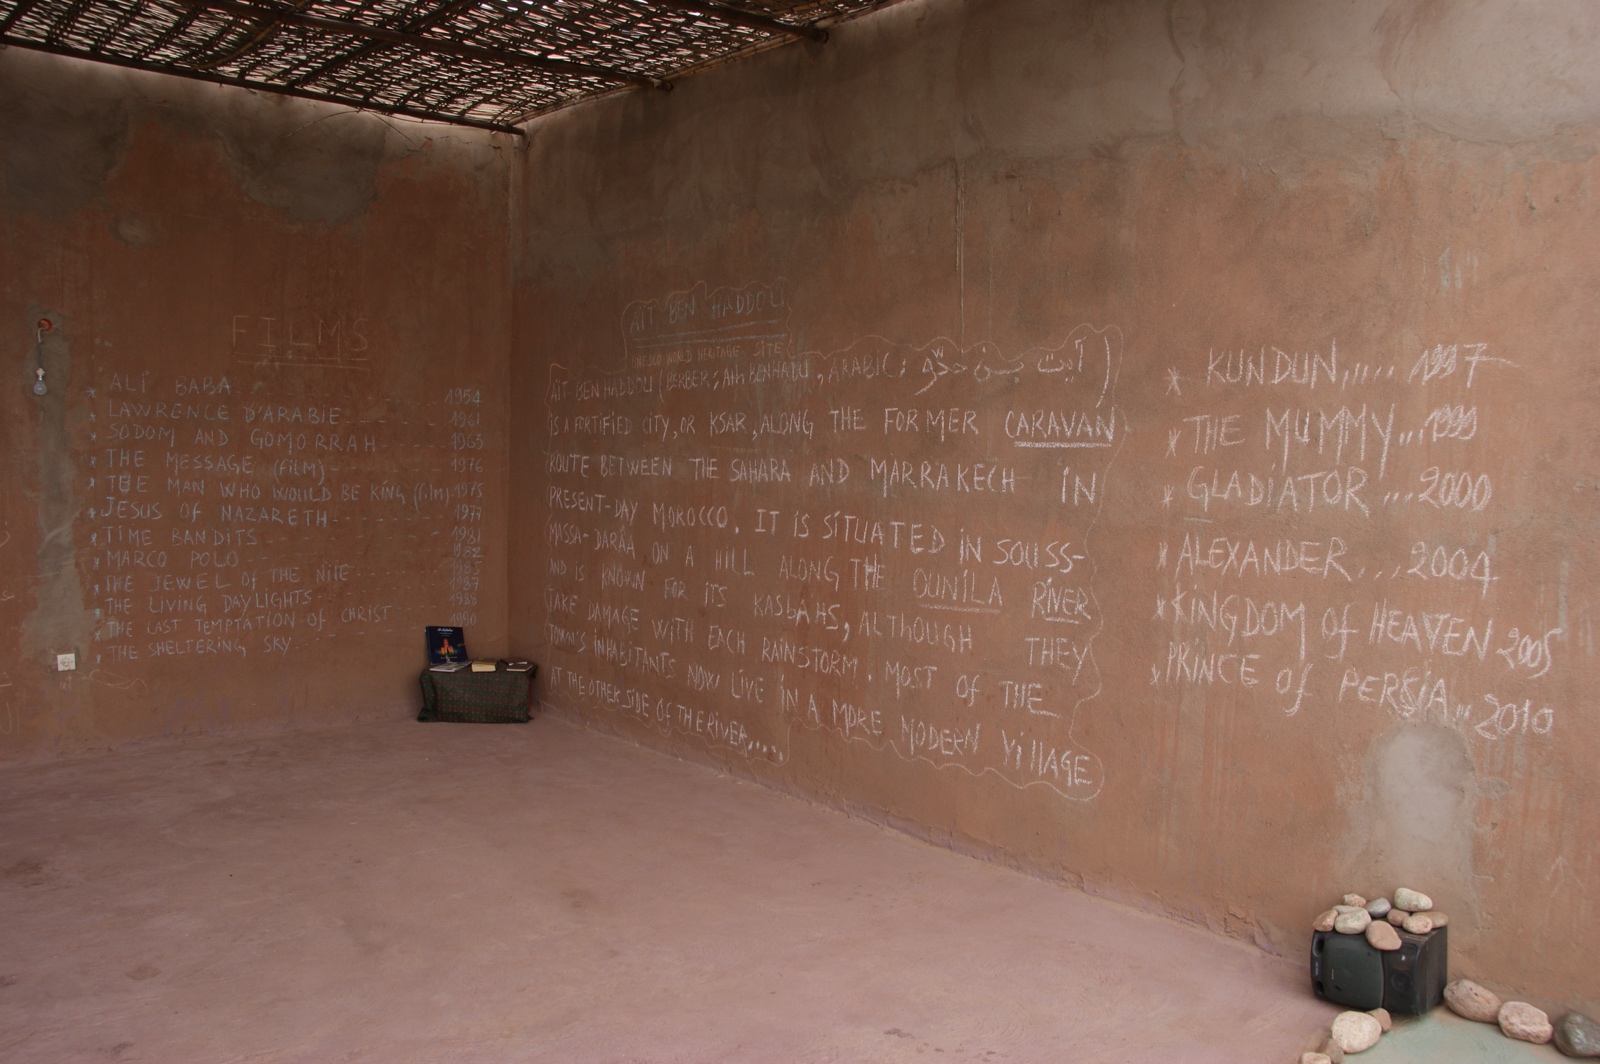 FILMS
* ALI BABA 1954
* LAWRENCE D'ARABIE 1961
* SODOM AND GOMORRAH 1963
* THE MESSAGE (film) 1976
* THE MAN WHO WOULD BE KING (film) 1975
* JESUS of NAZARETH 1977
* TIME BANDITS 1981
* MARCO POLO 1982
* THE JEWEL of THE NILE 1985
* THE LIVING DAYLIGHTS 1987
* THE LAST TEMPTATION of CHRIST 1988
* THE SHELTERING SKY 1990
AIT BEN HADDOU
UNESCO WORLD HERITAGE SITE
AIT BEN HADDOU (BERBER; Ath BENHADU, ARABIC; آيت بن حدّو)
IS A FORTIFIED CITY, OR KSAR, ALONG THE FORMER CARAVAN
ROUTE BETWEEN THE SAHARA AND MARRAKECH IN
PRESENT-DAY MOROCCO. IT IS SITUATED IN SOUSS-
MASSA-DARÂA ON A HILL ALONG THE OUNILA RIVER
AND IS KNOWN FOR ITS KASBAHS, ALTHOUGH THEY
TAKE DAMAGE WITH EACH RAINSTORM. MOST OF THE
TOWN'S INHABITANTS NOW LIVE IN A MORE MODERN VILLAGE
AT THE OTHER SIDE OF THE RIVER....
* KUNDUN..... 1997
* THE MUMMY...1999
* GLADIATOR...2000
* ALEXANDER...2004
* KINGDOM of HEAVEN 2005
* PRINCE of PERSIA...2010